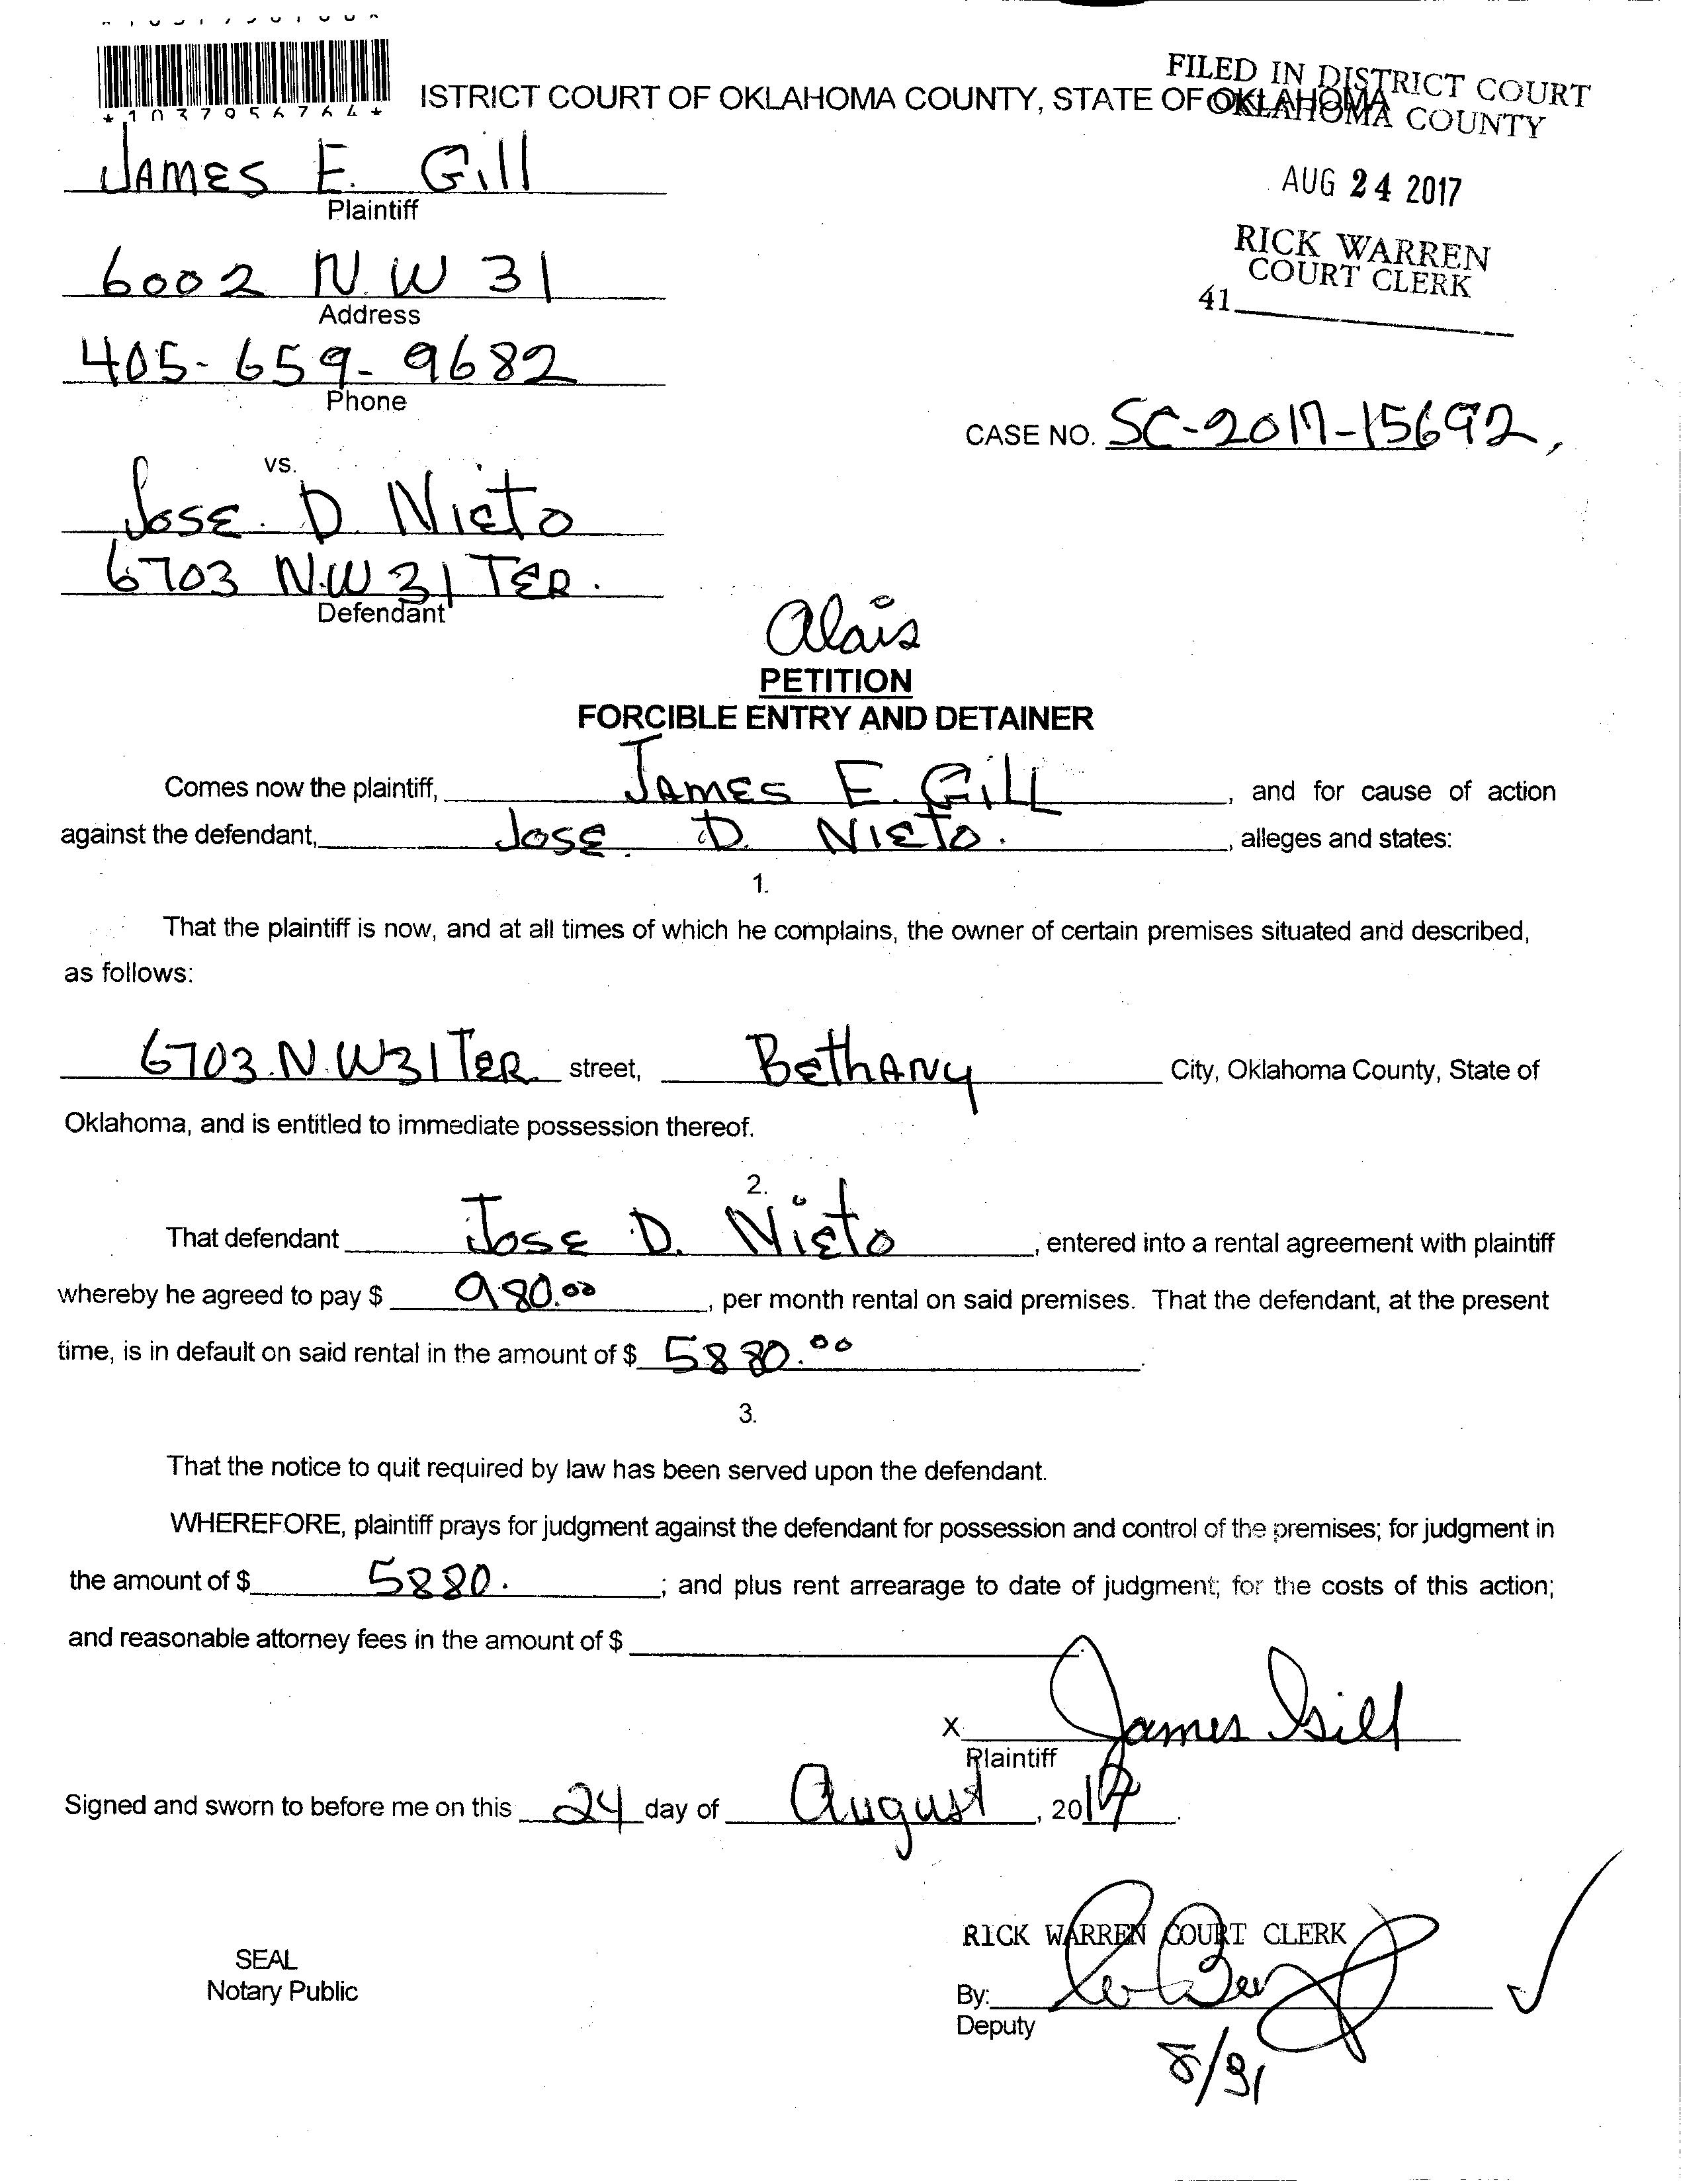 *1037956764*
ISTRICT COURT OF OKLAHOMA COUNTY, STATE OF OKLAHOMA
FILED IN DISTRICT COURT
OKLAHOMA COUNTY
JAMES E. Gill
Plaintiff
AUG 24 2017
6002 N.W 31
Address
RICK WARREN
COURT CLERK
41
405-659-9682
Phone
CASE NO. SC-2017-15692,
vs.
Jose D. Nieto
6703 N.W 31 TER.
Defendant
Alais
PETITION
FORCIBLE ENTRY AND DETAINER
Comes now the plaintiff, JAMES E. GILL, and for cause of action
against the defendant, Jose D. NIETO., alleges and states:
1.
That the plaintiff is now, and at all times of which he complains, the owner of certain premises situated and described,
as follows:
6703 N.W 31 TER street, BethANy City, Oklahoma County, State of
Oklahoma, and is entitled to immediate possession thereof.
2.
That defendant Jose D. Nieto, entered into a rental agreement with plaintiff
whereby he agreed to pay $ 980.00, per month rental on said premises. That the defendant, at the present
time, is in default on said rental in the amount of $ 5880.00.
3.
That the notice to quit required by law has been served upon the defendant.
WHEREFORE, plaintiff prays for judgment against the defendant for possession and control of the premises; for judgment in
the amount of $ 5880. ; and plus rent arrearage to date of judgment; for the costs of this action;
and reasonable attorney fees in the amount of $
X James Gill
Plaintiff
Signed and sworn to before me on this 24 day of August, 2017.
RICK WARREN COURT CLERK
SEAL
Notary Public
By:
Deputy
8/31